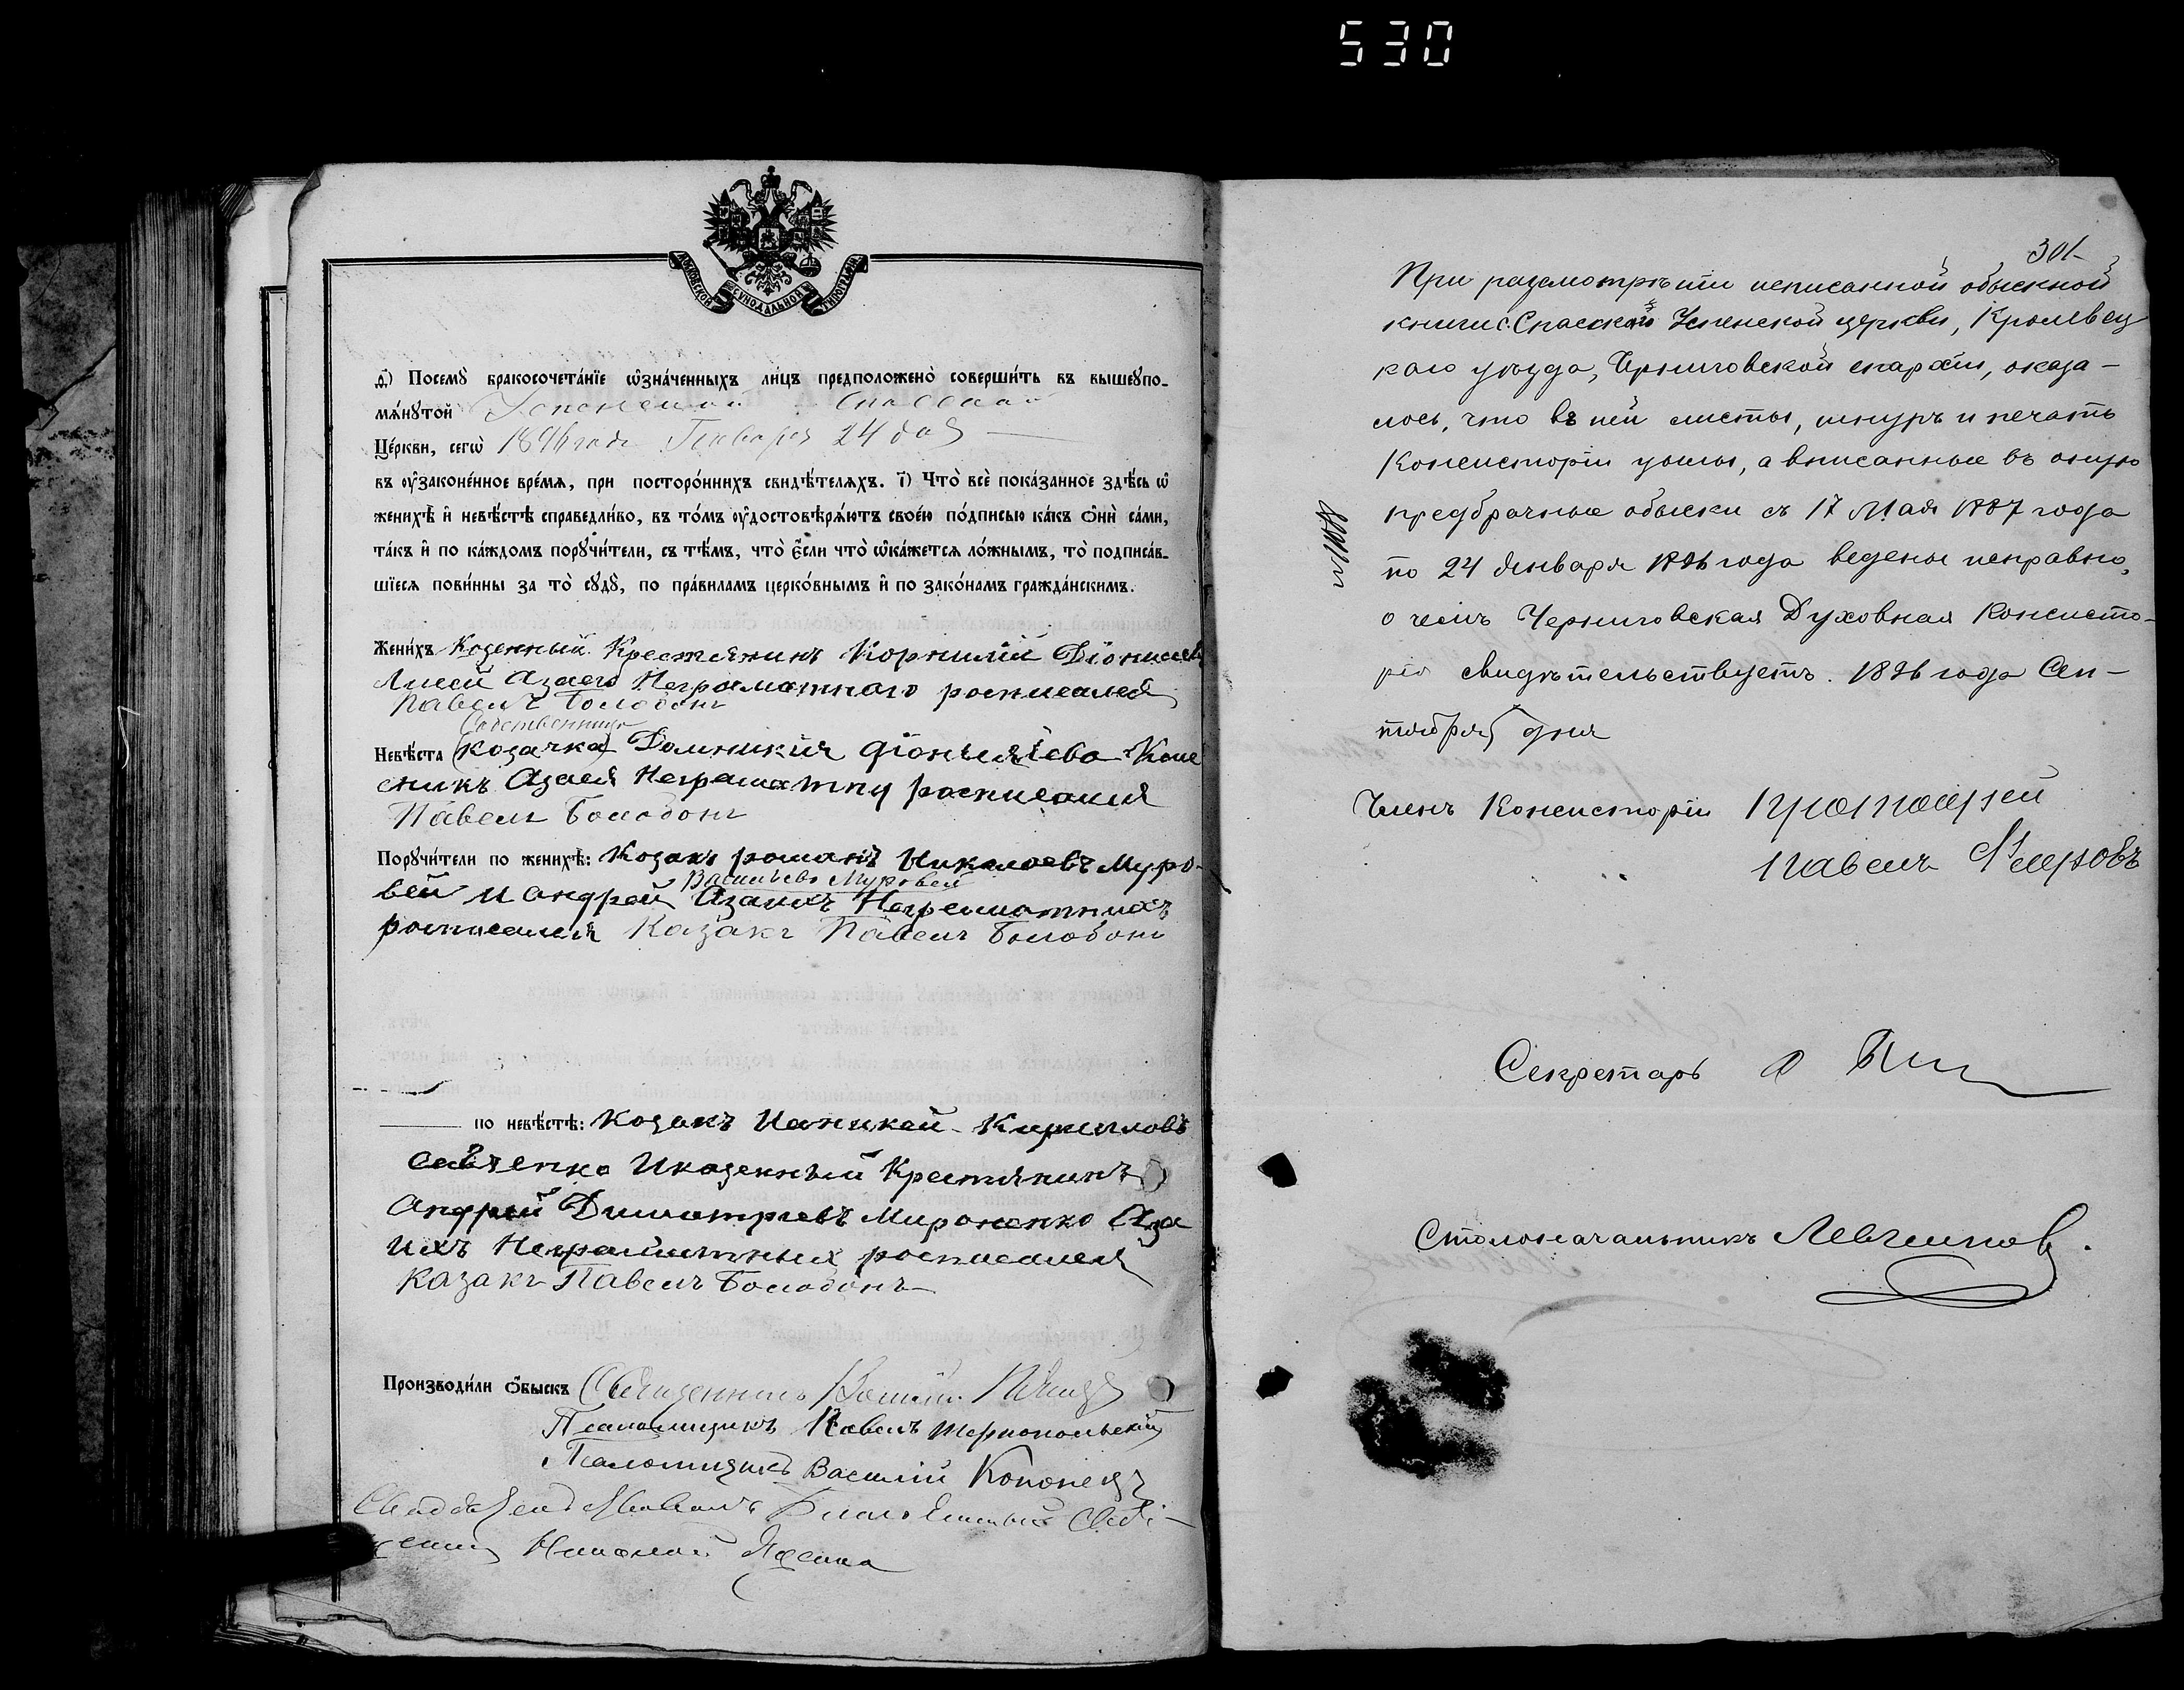 530
МОСКОВСКОЙ СѴНОДАЛЬНОЙ ТИПОГРАФІИ
д҃) Посемꙋ̀ бракосочета́нїе ѡ҆зна́ченныхъ ли́цъ предположенò соверши́ть въ вышеꙋпо-
мѧ́нꙋтой Успенской Спасской
Це́ркви, сегѡ̀ 1896 года Января 24 дня
въ ᲂу҆законе́нное вре́мѧ, при посторо́ннихъ свидѣ́телѧхъ. і҃) Что̀ всѐ пока́занное здѣ́сь ѡ҆
женихѣ̀ и҆ невѣ́стѣ справедли́во, въ то́мъ ᲂу҆достовѣрѧ́ютъ свое́ю по́дписью ка́къ ѻ҆нѝ са́ми,
та́къ и҆ по ка́ждомъ порꙋчи́тели, съ тѣ́мъ, что̀ є҆́сли что̀ ѡ҆ка́жетсѧ ло́жнымъ, то̀ подписа́в-
шїесѧ пови́нны за то̀ сꙋдꙋ̀, по пра́виламъ церко́внымъ и҆ по зако́намъ гражда́нскимъ.
Жени́хъ Козенный Крестянинъ Корнилій Діонисіев
Лисей Азаего Неграматного росписался
Павелъ Болобонъ
Собственница
Невѣ́ста (козачка) Домникія
Азаея Неграматну росписался
Павелъ Болобонъ
Порꙋчи́тели по женихѣ̀: Козакъ роман Николаевъ Муро-
Васильевъ Муровей
вей и андрей Азаихъ Неграмотныхъ
росписался Казакъ Павелъ Болобонъ
по невѣ́стѣ: Козакъ Кириловъ
савченко Икозенный Крестянинъ
Андрей Димитриевъ Мироненко Аза
ихъ Неграмотных росписался
Казакъ Павелъ Болобонъ
Производи́ли ѻ҆́быскъ Священникъ
Псаломщикъ Павелъ Тернопольский
Псаломщикъ Василій Кононець
Николай
301
При разсмотрѣніи исписанной обыскной
книги с. Спасского Успенской церкви, Кролевец
каго уѣзда, Черниговской епархіи, оказа-
лось, что въ ней листы, шнуръ и печать
Консисторіи цѣлы, а вписанные въ оную
предбрачные обыски съ 17 Мая 1887 года
по 24 Января 1896 года ведены исправно,
о чемъ Черниговская Духовная Консисто-
рія свидѣтельствуетъ. 1896 года Сен-
тября дня
Членъ Консисторіи Протоіерей
Павелъ
Секретарь
Столоначальникъ